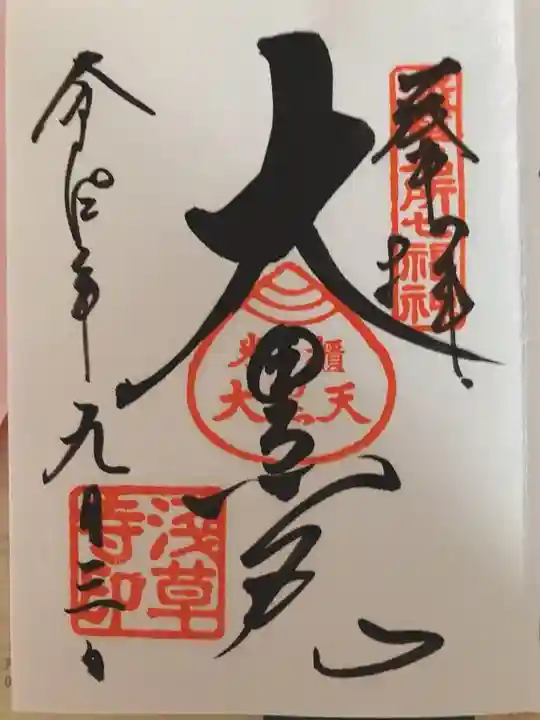 奉拝
浅草名所七福神
大黒天
米櫃
大黒天
浅草
寺印
令和
年九月三日